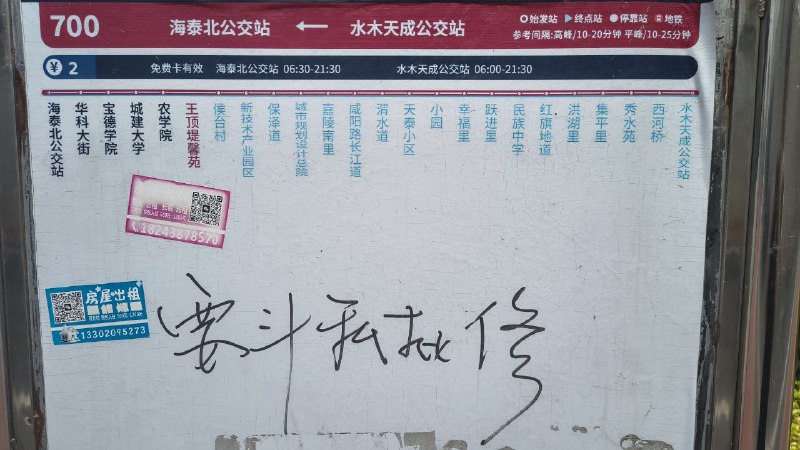 700 海泰北公交站 ← 水木天成公交站
始发站 终点站 停靠站 地铁
参考间隔:高峰/10-20分钟 平峰/10-25分钟
¥ 2 免费卡有效 海泰北公交站 06:30-21:30 水木天成公交站 06:00-21:30
海泰北公交站
华科大街
宝德学院
城建大学
农学院
王顶堤馨苑
侯台村
新技术产业园区
保泽道
城市规划设计总院
嘉陵南里
咸阳路长江道
渭水道
天泰小区
小园
幸福里
跃进里
民族中学
红旗地道
洪湖里
集平里
秀水苑
西河桥
水木天成公交站
18243878570
房屋出租
13302095273
要斗私批修